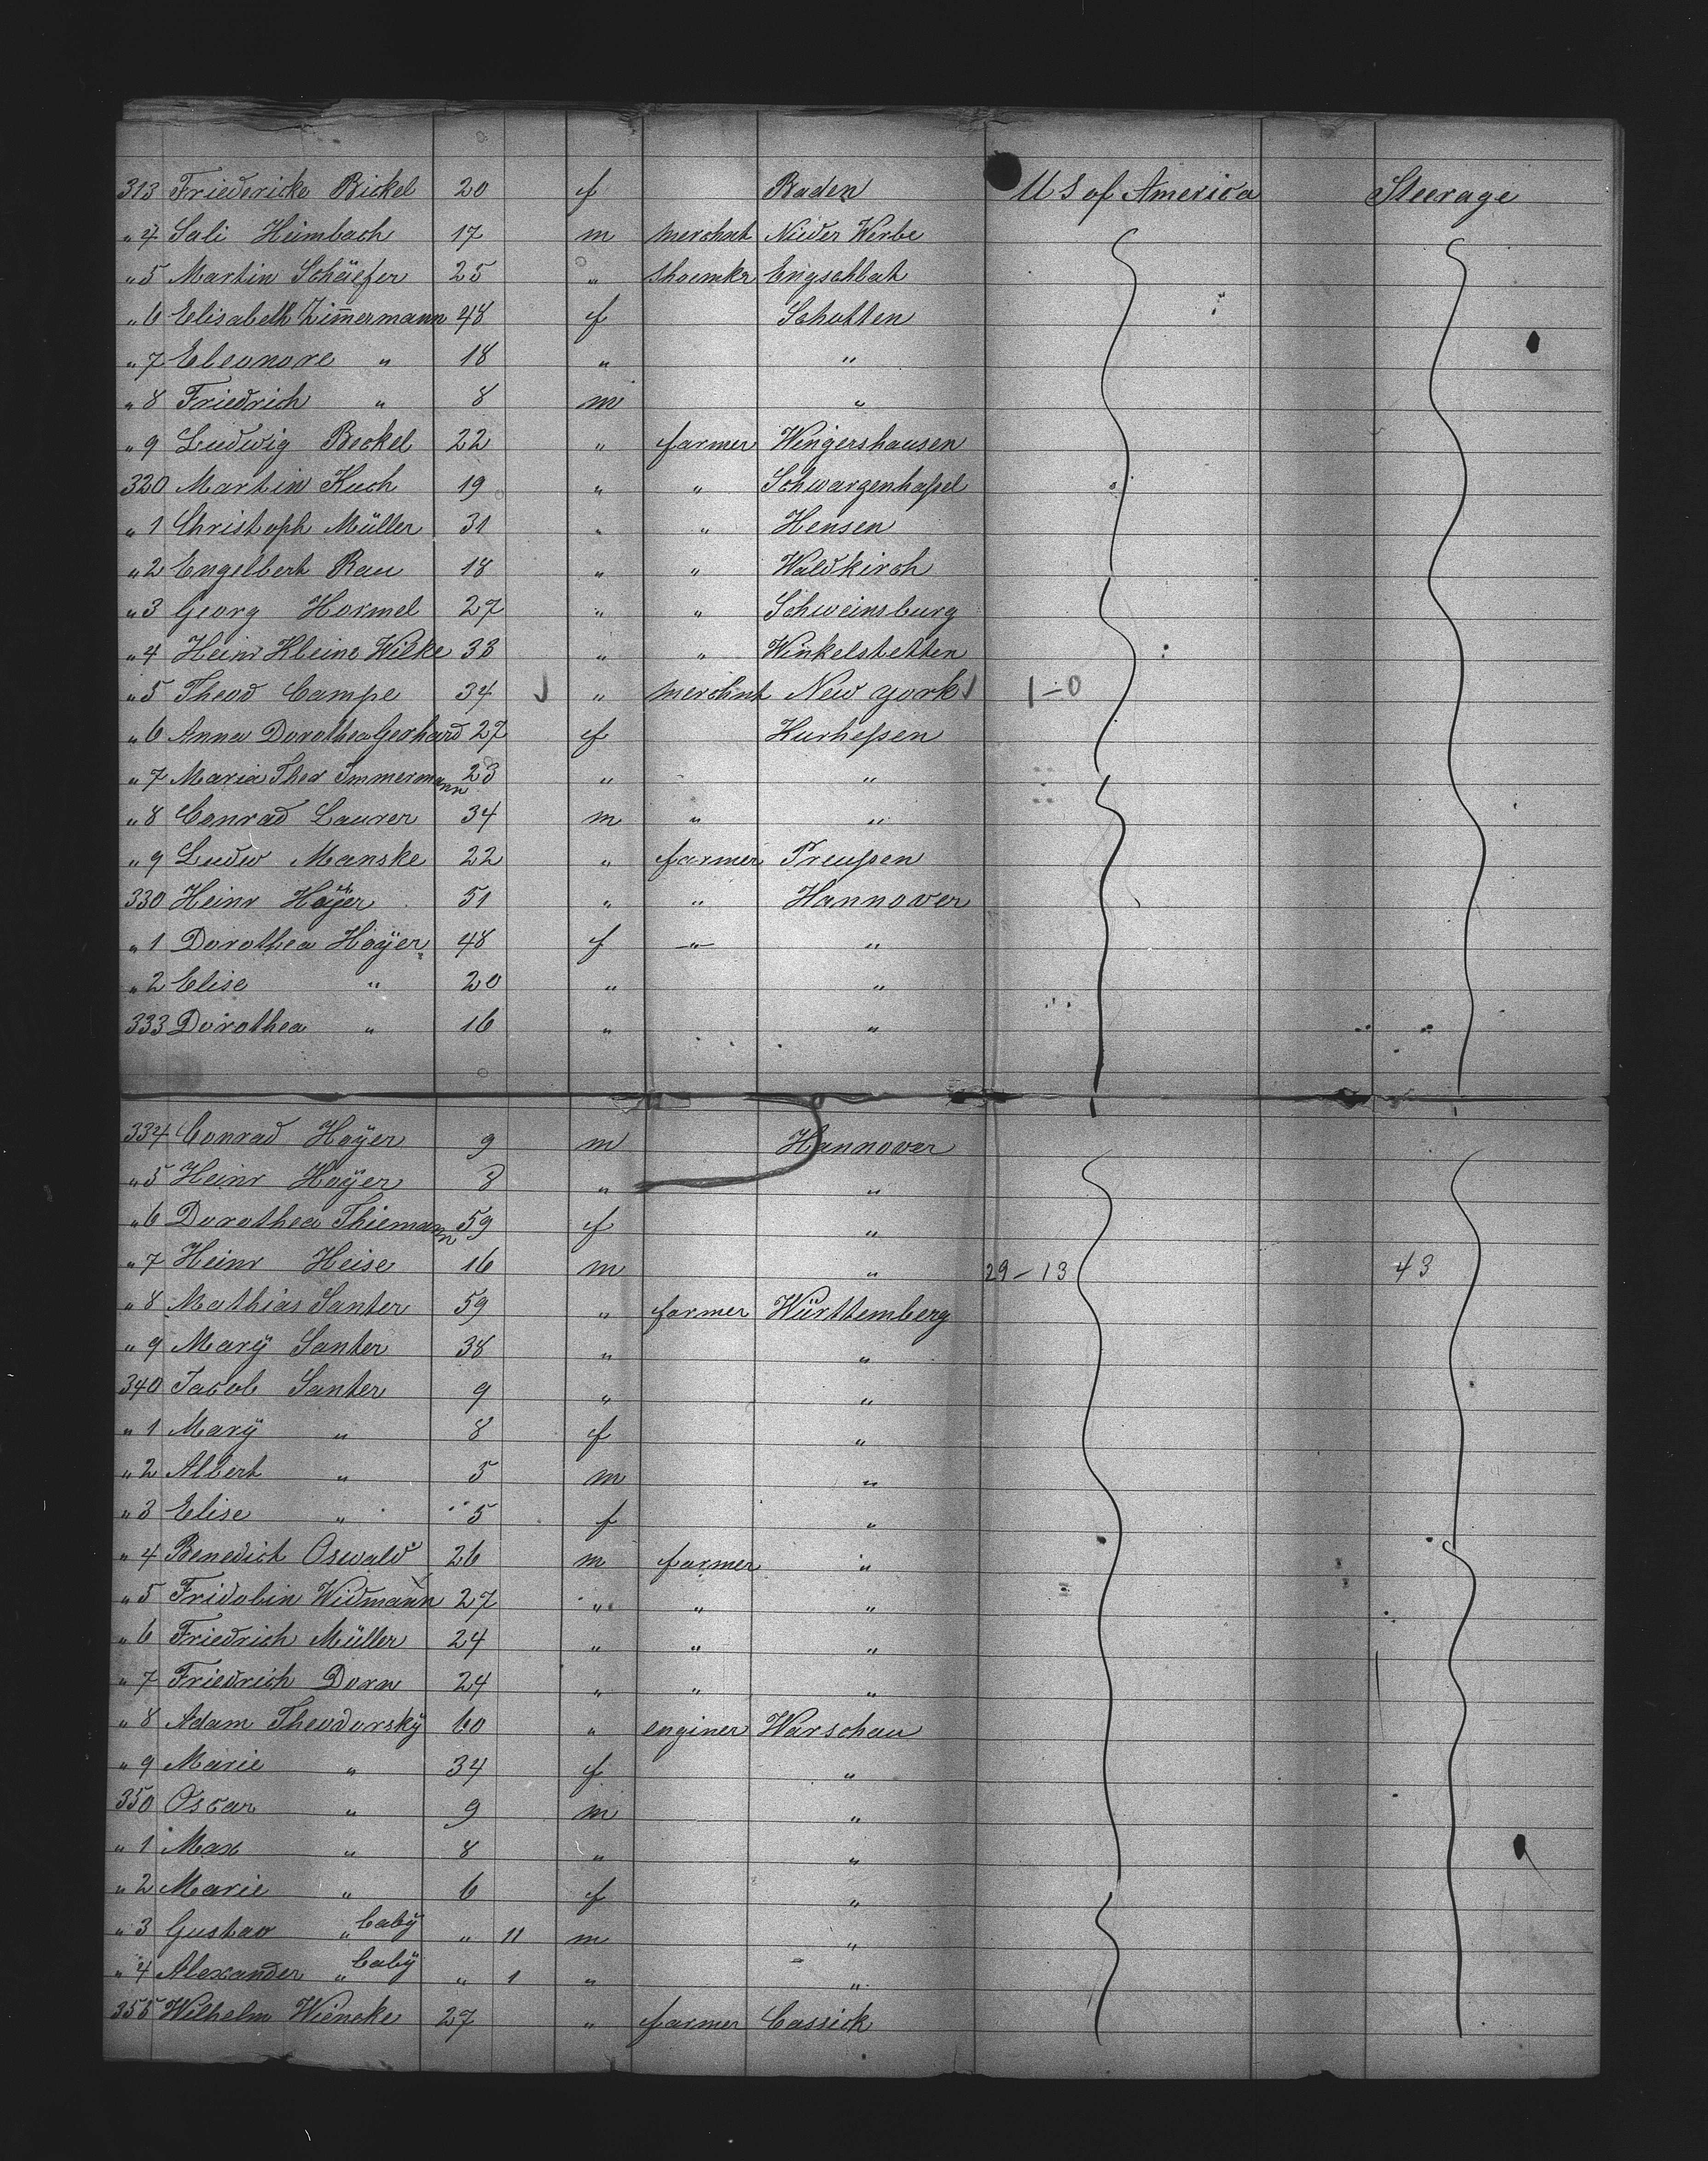 313 Friedericke Bickel 20 f Baden U S of America Steerage
„ 4 Sali Heimbach 17 m merchnt Nieder Werbe
„ 5 Martin Schäefer 25 „ shoemkr Engschbat
„ 6 Elisabeth Zim̄ermann 48 f Schotten
„ 7 Eleonore „ 18 „ „
„ 8 Friedrich „ 8 m „
„ 9 Ludwig Beckel 22 „ farmer Wingershausen
320 Martin Kuch 19 „ „ Schwargenhaſsel
„ 1 Christoph Müller 31 „ „ Hensen
„ 2 Engelbert Rau 18 „ „ Waldkirch
„ 3 Georg Hormel 27 „ „ Schweinsburg
„ 4 Heinr Kleine Wilke 33 „ „ Winkelstetten
„ 5 Theod Campe 34 „ merchnt New york 1-0
„ 6 Anna Dorothea Gerhard 27 f Kurheſsen
„ 7 Maria Ther Immermann 23 „ „
„ 8 Conrad Laurer 34 m „ „
„ 9 Ludw Manske 22 „ farmer Preuſsen
330 Heinr Höyer 51 „ „ Hannover
„ 1 Dorothea Höyer 48 f „ „
„ 2 Elise „ 20 „ „
333 Dorothea „ 16 „ „
334 Conrad Hoyer 9 m Hannover
„ 5 Heinr Hoyer 8 „ „
„ 6 Dorothea Thiemann 59 f „
„ 7 Heinr Heise 16 m „ 29-13 43
„ 8 Mathias Santer 59 „ farmer Württemberg
„ 9 Marÿ Santer 38 „ „
340 Jacob Santer 9 „ „
„ 1 Marÿ „ 8 f „
„ 2 Albert „ 5 m „
„ 3 Elise „ 5 f „
„ 4 Benedict Oswald 26 m farmer „
„ 5 Fridolin Widmann 27 „ „ „
„ 6 Friedrich Müller 24 „ „ „
„ 7 Friedrich Dorn 24 „ „ „
„ 8 Adam Theodorskÿ 60 „ enginer Warschau
„ 9 Marie „ 34 f „
350 Oscar „ 9 m „
„ 1 Max „ 8 „ „
„ 2 Marie „ 6 f „
„ 3 Gustav „ babÿ „ 11 m „
„ 4 Alexander „ babÿ „ 1 „ „
355 Wilhelm Wieneke 27 „ farmer Cassick